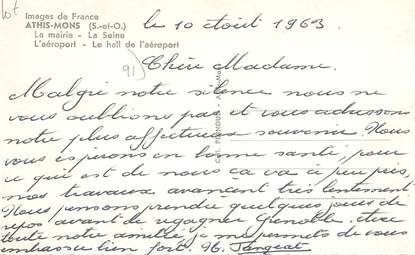 lot
Images de France
ATHIS-MONS (S.-et-O.)
La mairie - La Seine
L'aéroport - Le hall de l'aéroport
le 10 Août 1963.
91)
Chère Madame.
Malgré notre silence nous ne
vous oublions pas et vous adressons
notre plus affectueux souvenir. Nous
vous espérons en bonne santé, pour
ce qui est de nous ça va à peu près,
nos travaux avancent très lentement
Nous pensons prendre quelques jours de
repos avant de regagner Grenoble. Avec
toute notre amitié, je me permets de vous
embrasser bien fort. H. Sargeat